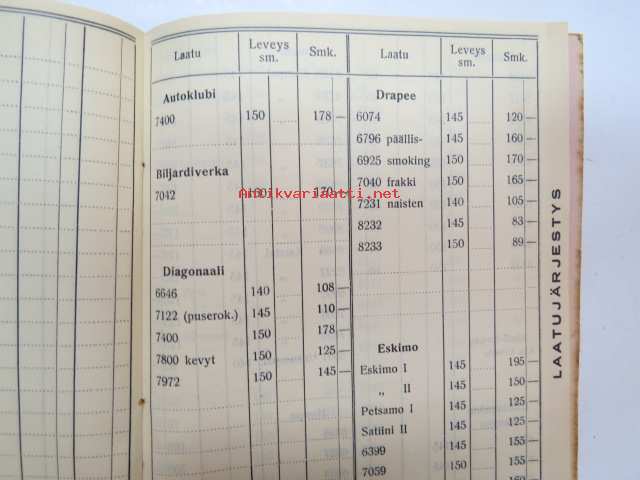 Laatu Leveys sm. Smk.
Autoklubi
7400 150 178 —
Biljardiverka
7042 130 170 —
Diagonaali
6646 140 108 —
7122 (puserok.) 145 110 —
7400 150 178 —
7800 kevyt 150 125 —
7972 150 145 —
Laatu Leveys sm. Smk.
Drapee
6074 145 120 —
6796 päällis- 145 160 —
6925 smoking 150 170 —
7040 frakki 150 165 —
7231 naisten 140 105 —
8232 145 83 —
8233 150 89 —
Eskimo
Eskimo I 145 195 —
„ II 145 150 —
Petsamo I 145 125 —
Satiini II 145 125 —
6399 145 155 —
7059 150 155 —
160 —
LAATUJÄRJESTYS
Antikvariaatti.net